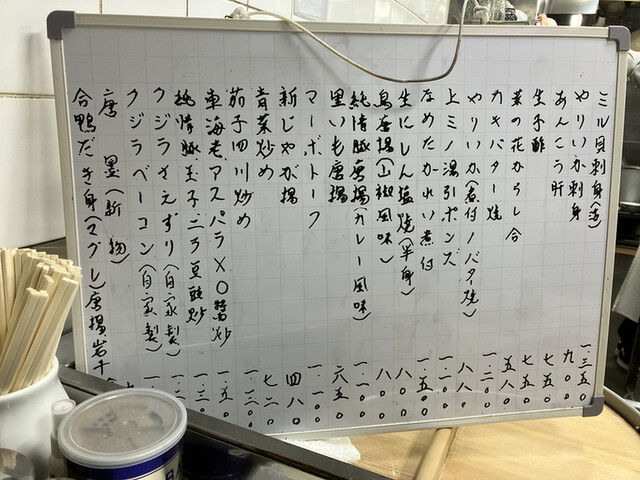 ミル貝刺身(薄) 一.三五〇
やりいか刺身 九〇〇
あんこう肝 七五〇
生子酢 七五〇
菜の花からし合 五八〇
カキバター焼 一.二〇〇
やりいか(煮付ノバター焼) 八八〇
上ミノ湯引ポンズ 一.一〇〇
なめたかれい煮付 一.五〇〇
生にしん塩焼(半身) 八〇〇
鳥唐揚(山椒風味) 八〇〇
純情豚唐揚カレー風味) 一.〇〇〇
里いも唐揚 六五〇
マーボトーフ 一.〇〇〇
新じゃが揚 四八〇
青菜炒め 七二〇
茄子四川炒め 一.〇〇〇
車海老、アスパラXO醬炒 一.五〇〇
純情豚、玉子ニラ豆豉炒 一.二〇〇
クジラさえずり(自家製)
クジラベーコン(自家製)
唐墨(新物)
合鴨だき身(マグレ)唐揚岩千